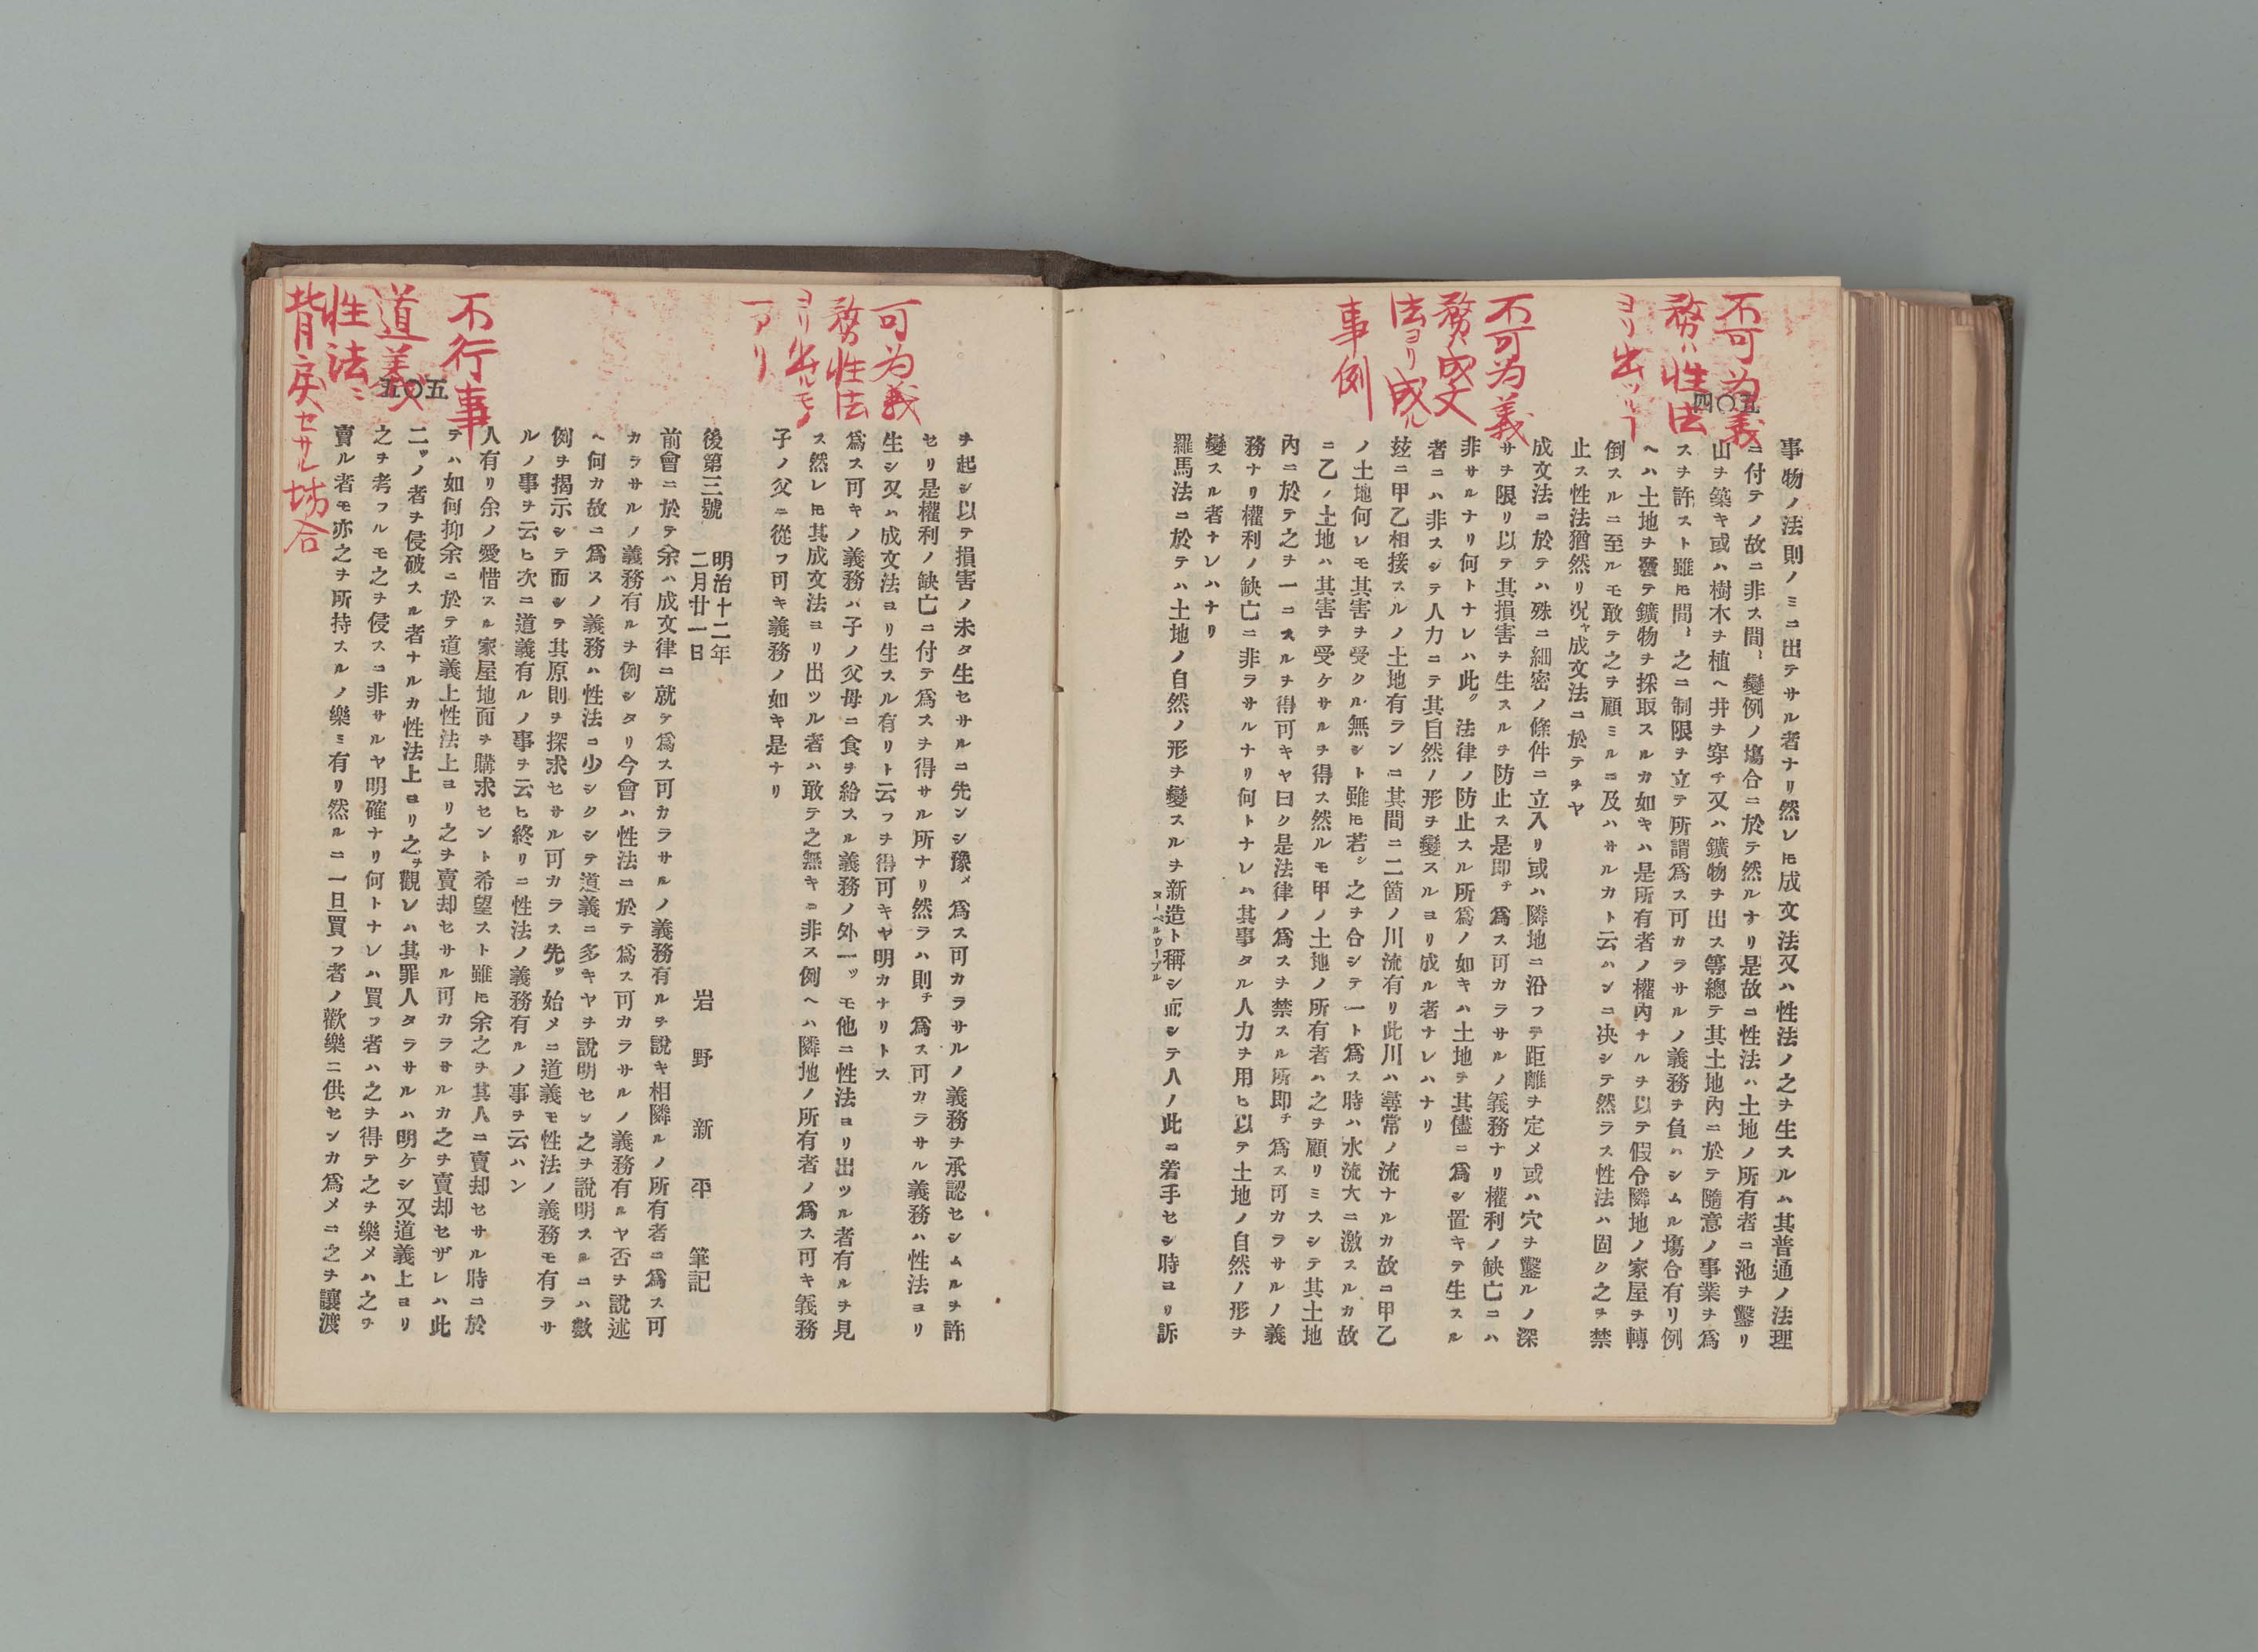 不可为義
務ハ性法
ヨリ出ツル┐
不可为義
務ハ成文
法ヨリ成ル
事例
五〇四
事物ノ法則ノミニ出テサル者ナリ然レ𪜈成文法又ハ性法ノ之ヲ生スルハ其普通ノ法理
ニ付テノ故ニ非ス間〻變例ノ塲合ニ於テ然ルナリ是故ニ性法ハ土地ノ所有者ニ池ヲ鑿リ
山ヲ築キ或ハ樹木ヲ植ヘ井ヲ穿チ又ハ鑛物ヲ出ス等總テ其土地內ニ於テ隨意ノ事業ヲ爲
スヲ許スト雖𪜈間〻之ニ制限ヲ立テ所謂爲ス可カラサルノ義務ヲ負ハシムル塲合有リ例
ヘハ土地ヲ發テ鑛物ヲ採取スルカ如キハ是所有者ノ權內ナルヲ以テ假令隣地ノ家屋ヲ轉
倒スルニ至ルモ敢テ之ヲ顧ミルニ及ハサルカト云ハンニ决シテ然ラス性法ハ固ク之ヲ禁
止ス性法猶然リ况ヤ成文法ニ於テヲヤ
成文法ニ於テハ殊ニ細密ノ條件ニ立入リ或ハ隣地ニ沿フテ距離ヲ定メ或ハ穴ヲ鑿ルノ深
サヲ限リ以テ其損害ヲ生スルヲ防止ス是卽チ爲ス可カラサルノ義務ナリ權利ノ缺亡ニハ
非サルナリ何トナレハ此ク法律ノ防止スル所爲ノ如キハ土地ヲ其儘ニ爲シ置キテ生スル
者ニハ非スシテ人力ニテ其自然ノ形ヲ變スルヨリ成ル者ナレハナリ
玆ニ甲乙相接スルノ土地有ランニ其間ニ二箇ノ川流有リ此川ハ尋常ノ流ナルカ故ニ甲乙
ノ土地何レモ其害ヲ受クル無シト雖𪜈若シ之ヲ合シテ一ト爲ス時ハ水流大ニ激スルカ故
ニ乙ノ土地ハ其害ヲ受ケサルヲ得ス然ルモ甲ノ土地ノ所有者ハ之ヲ顧リミスシテ其土地
內ニ於テ之ヲ一ニスルヲ得可キヤ曰ク是法律ノ爲スヲ禁スル所卽チ爲ス可カラサルノ義
務ナリ權利ノ缺亡ニ非ラサルナリ何トナレハ其事タル人力ヲ用ヒ以テ土地ノ自然ノ形ヲ
變スル者ナレハナリ
羅馬法ニ於テハ土地ノ自然ノ形ヲ變スルヲ新造ト稱シ而シテ人ノ此ニ着手セシ時ヨリ訴
ヌーベルウーブル
可为義
務ノ性法
ヨリ出ルモノ
一アリ
不行事
道義又
性法ニ
背戻セサル塲合
五〇五
ヲ起シ以テ損害ノ未タ生セサルニ先ンシ豫メ爲ス可カラサルノ義務ヲ承認セシムルヲ許
セリ是權利ノ缺亡ニ付テ爲スヲ得サル所ナリ然ラハ則チ爲ス可カラサル義務ハ性法ヨリ
生シ又ハ成文法ヨリ生スル有リト云フヲ得可キヤ明カナリトス
爲ス可キノ義務ハ子ノ父母ニ食ヲ給スル義務ノ外一ツモ他ニ性法ヨリ出ツル者有ルヲ見
ス然レ𪜈其成文法ヨリ出ツル者ハ敢テ之無キニ非ス例ヘハ隣地ノ所有者ノ爲ス可キ義務
子ノ父ニ從フ可キ義務ノ如キ是ナリ
後第三號 明治十二年
二月廿一日
岩野新平 筆記
前會ニ於テ余ハ成文律ニ就テ爲ス可カラサルノ義務有ルヲ說キ相隣ルノ所有者ニ爲ス可
カラサルノ義務有ルヲ例シタリ今會ハ性法ニ於テ爲ス可カラサルノ義務有ルヤ否ヲ說述
ヘ何カ故ニ爲スノ義務ハ性法ニ少シクシテ道義ニ多キヤヲ說明セン之ヲ說明スルニハ數
例ヲ揭示シテ而シテ其原則ヲ探求セサル可カラス先ツ始メニ道義モ性法ノ義務モ有ラサ
ルノ事ヲ云ヒ次ニ道義有ルノ事ヲ云ヒ終リニ性法ノ義務有ルノ事ヲ云ハン
人有リ余ノ愛惜スル家屋地面ヲ購求セント希望スト雖𪜈余之ヲ其人ニ賣却セサル時ニ於
テハ如何抑余ニ於テ道義上性法上ヨリ之ヲ賣却セサル可カラサルカ之ヲ賣却セザレハ此
二ツノ者ヲ侵破スル者ナルカ性法上ヨリ之ヲ觀レハ其罪人タラサルハ明ケシ又道義上ヨリ
之ヲ考フルモ之ヲ侵スニ非サルヤ明確ナリ何トナレハ買フ者ハ之ヲ得テ之ヲ樂メハ之ヲ
賣ル者モ亦之ヲ所持スルノ樂ミ有リ然ルニ一旦買フ者ノ歡樂ニ供センカ爲メニ之ヲ讓渡